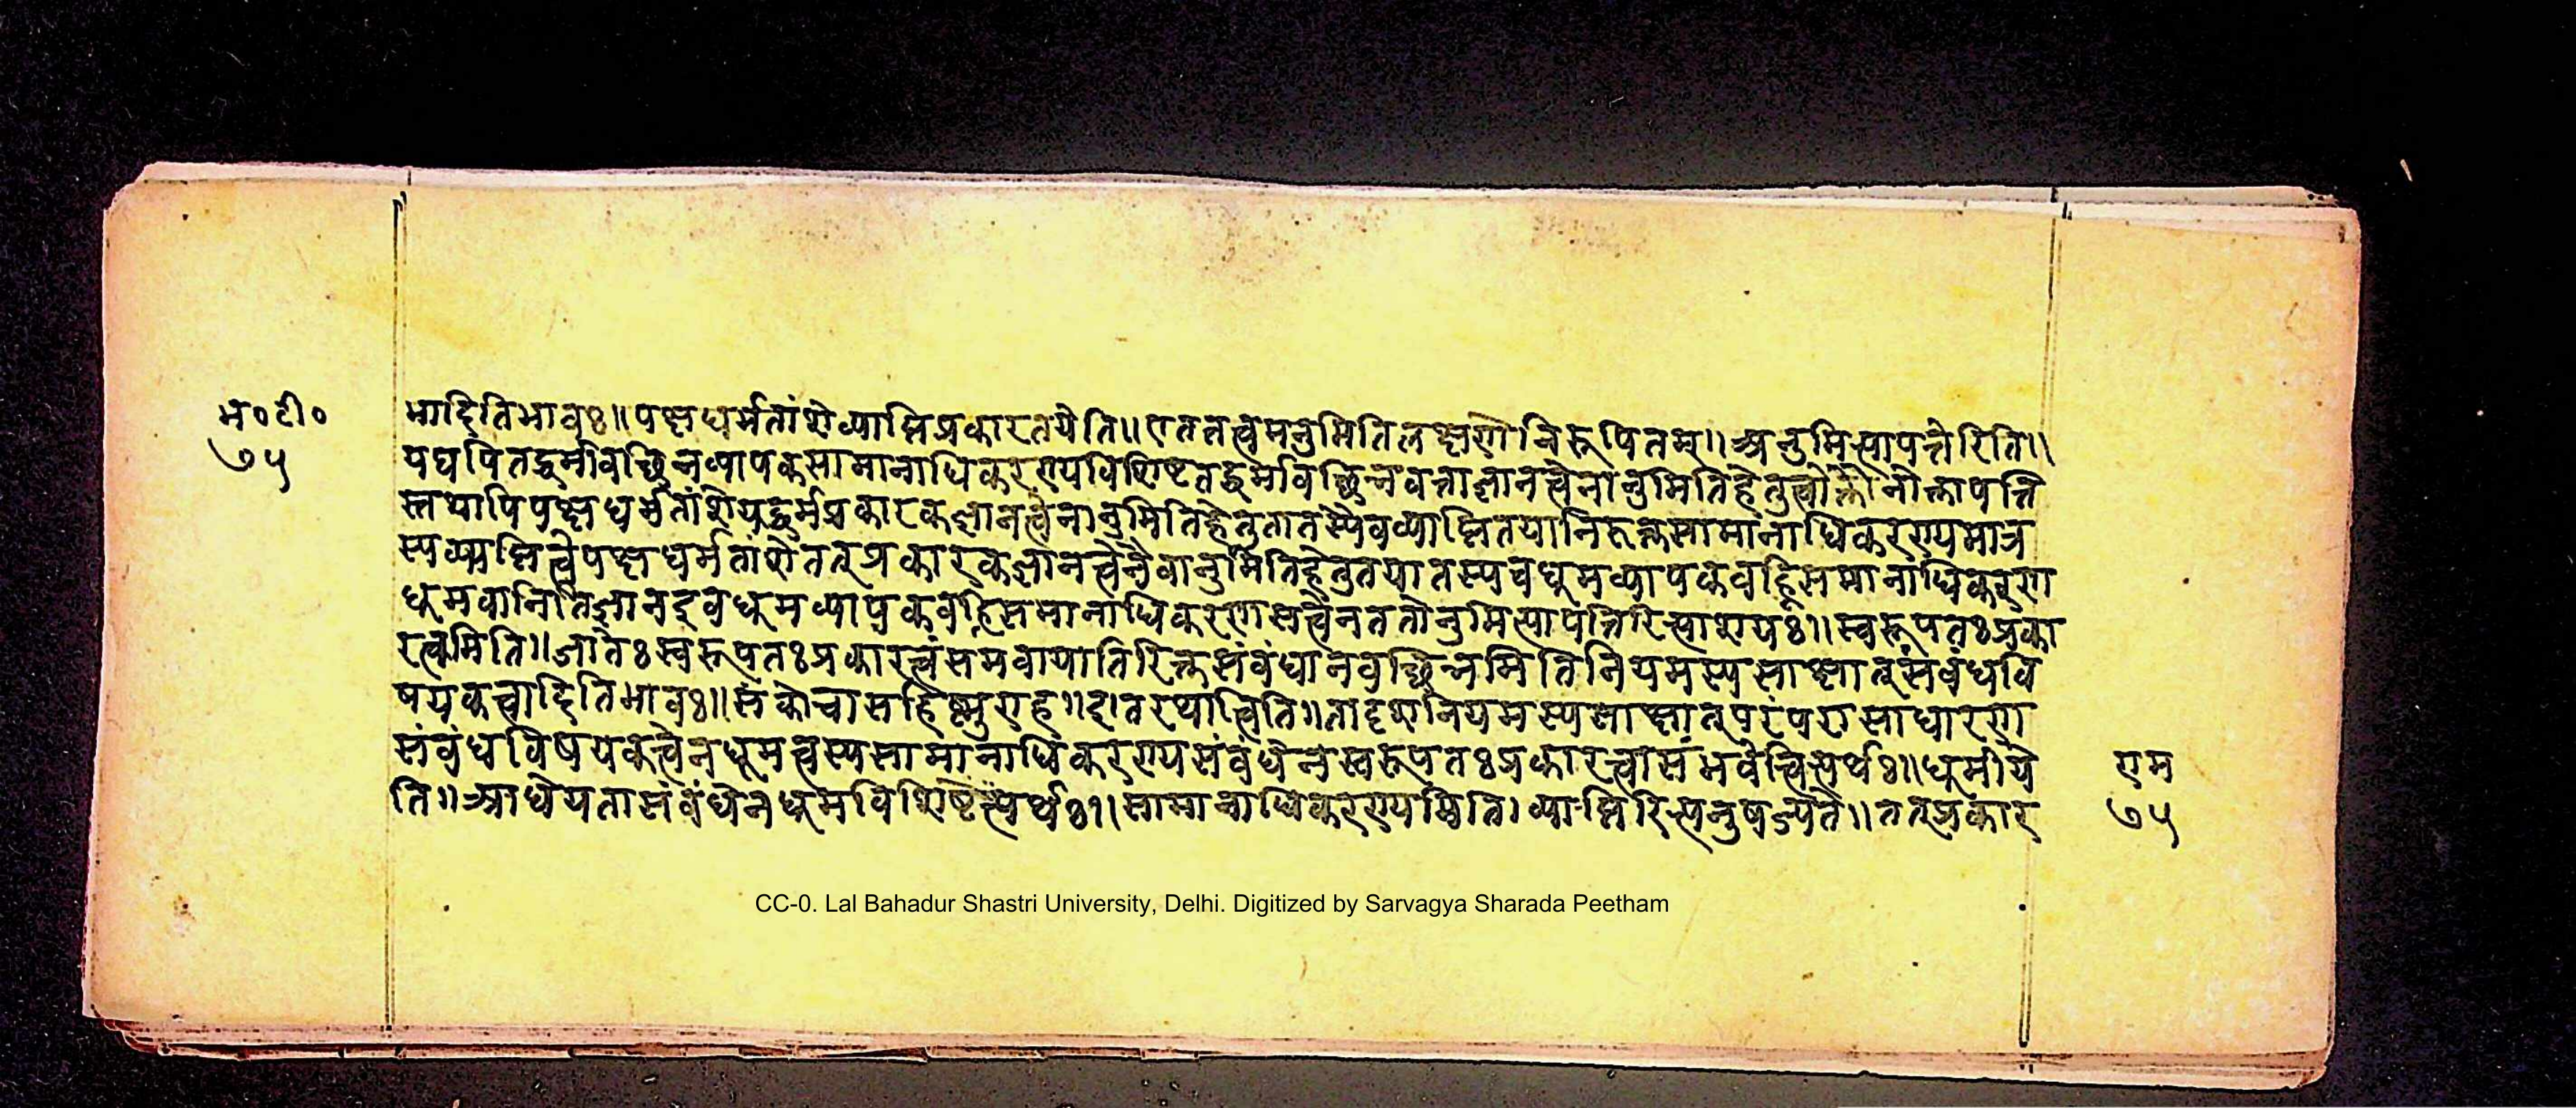 म०टी०
७५
मादितिभावः॥पक्षधर्मतांशेव्याप्तिप्रकारतयेति॥एतत्तत्त्वमनुमितिलक्षणेनिरूपितम्॥अनुमित्यापत्तेरिति॥
यद्यपितद्धर्मावच्छिन्नव्यापकसामानाधिकरण्यविशिष्टतद्धर्मावच्छिन्नवत्ताज्ञानत्वेनानुमितिहेतुत्वोक्तौनोक्तापत्ति
स्तथापिपक्षधर्मतांशेयद्धर्मप्रकारकज्ञानत्वेनानुमितिहेतुतातस्यैवव्याप्तितयानिरुक्तसामानाधिकरण्यमात्र
स्यव्याप्तित्वेपक्षधर्मतांशेतत्प्रकारकज्ञानत्वेनैवानुमितिहेतुतयातस्यचधूमव्यापकवह्निसमानाधिकरण
धूमवानितिज्ञानइवधूमव्यापकवह्निसमानाधिकरणसत्त्वेनततोनुमित्यापत्तिरित्याशयः॥स्वरूपतःप्रका
रत्वमिति॥जातेःस्वरूपतःप्रकारत्वंसमवायातिरिक्तसंबंधानवच्छिन्नमितिनियमस्यसाक्षात्संबंधवि
षयकत्वादितिभावः॥संकोचासहिष्णुराह॥इतरथात्विति॥तादृशनियमस्यसाक्षात्परंपरासाधारण
संबंधविषयकत्वेनधूमत्वस्यसामानाधिकरण्यसंबंधेनस्वरूपतःप्रकारत्वासंभवेत्वित्यर्थः॥धूमीये
ति॥आधेयतासंबंधेनधूमविशिष्टेत्यर्थः॥सामानाधिकरण्यमिति।व्याप्तिरित्यनुषज्यते॥तत्प्रकार
एम
७५
CC-0. Lal Bahadur Shastri University, Delhi. Digitized by Sarvagya Sharada Peetham